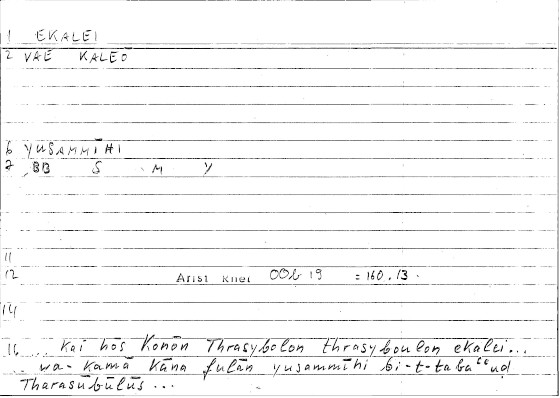 1 EKALEI
2 VAE KALEŌ
6 YUSAMMĪHI
7 BB S M Y
11
12 Arist Rhet 00b 19 = 160.13.
14
16 .. kai hōs Konōn Thrasybolon thrasyboulon ekalei...
.. wa- kamā kāna fulān yusammīhi bi-t-taba‘‘ud
Tharasūbūlūs ...